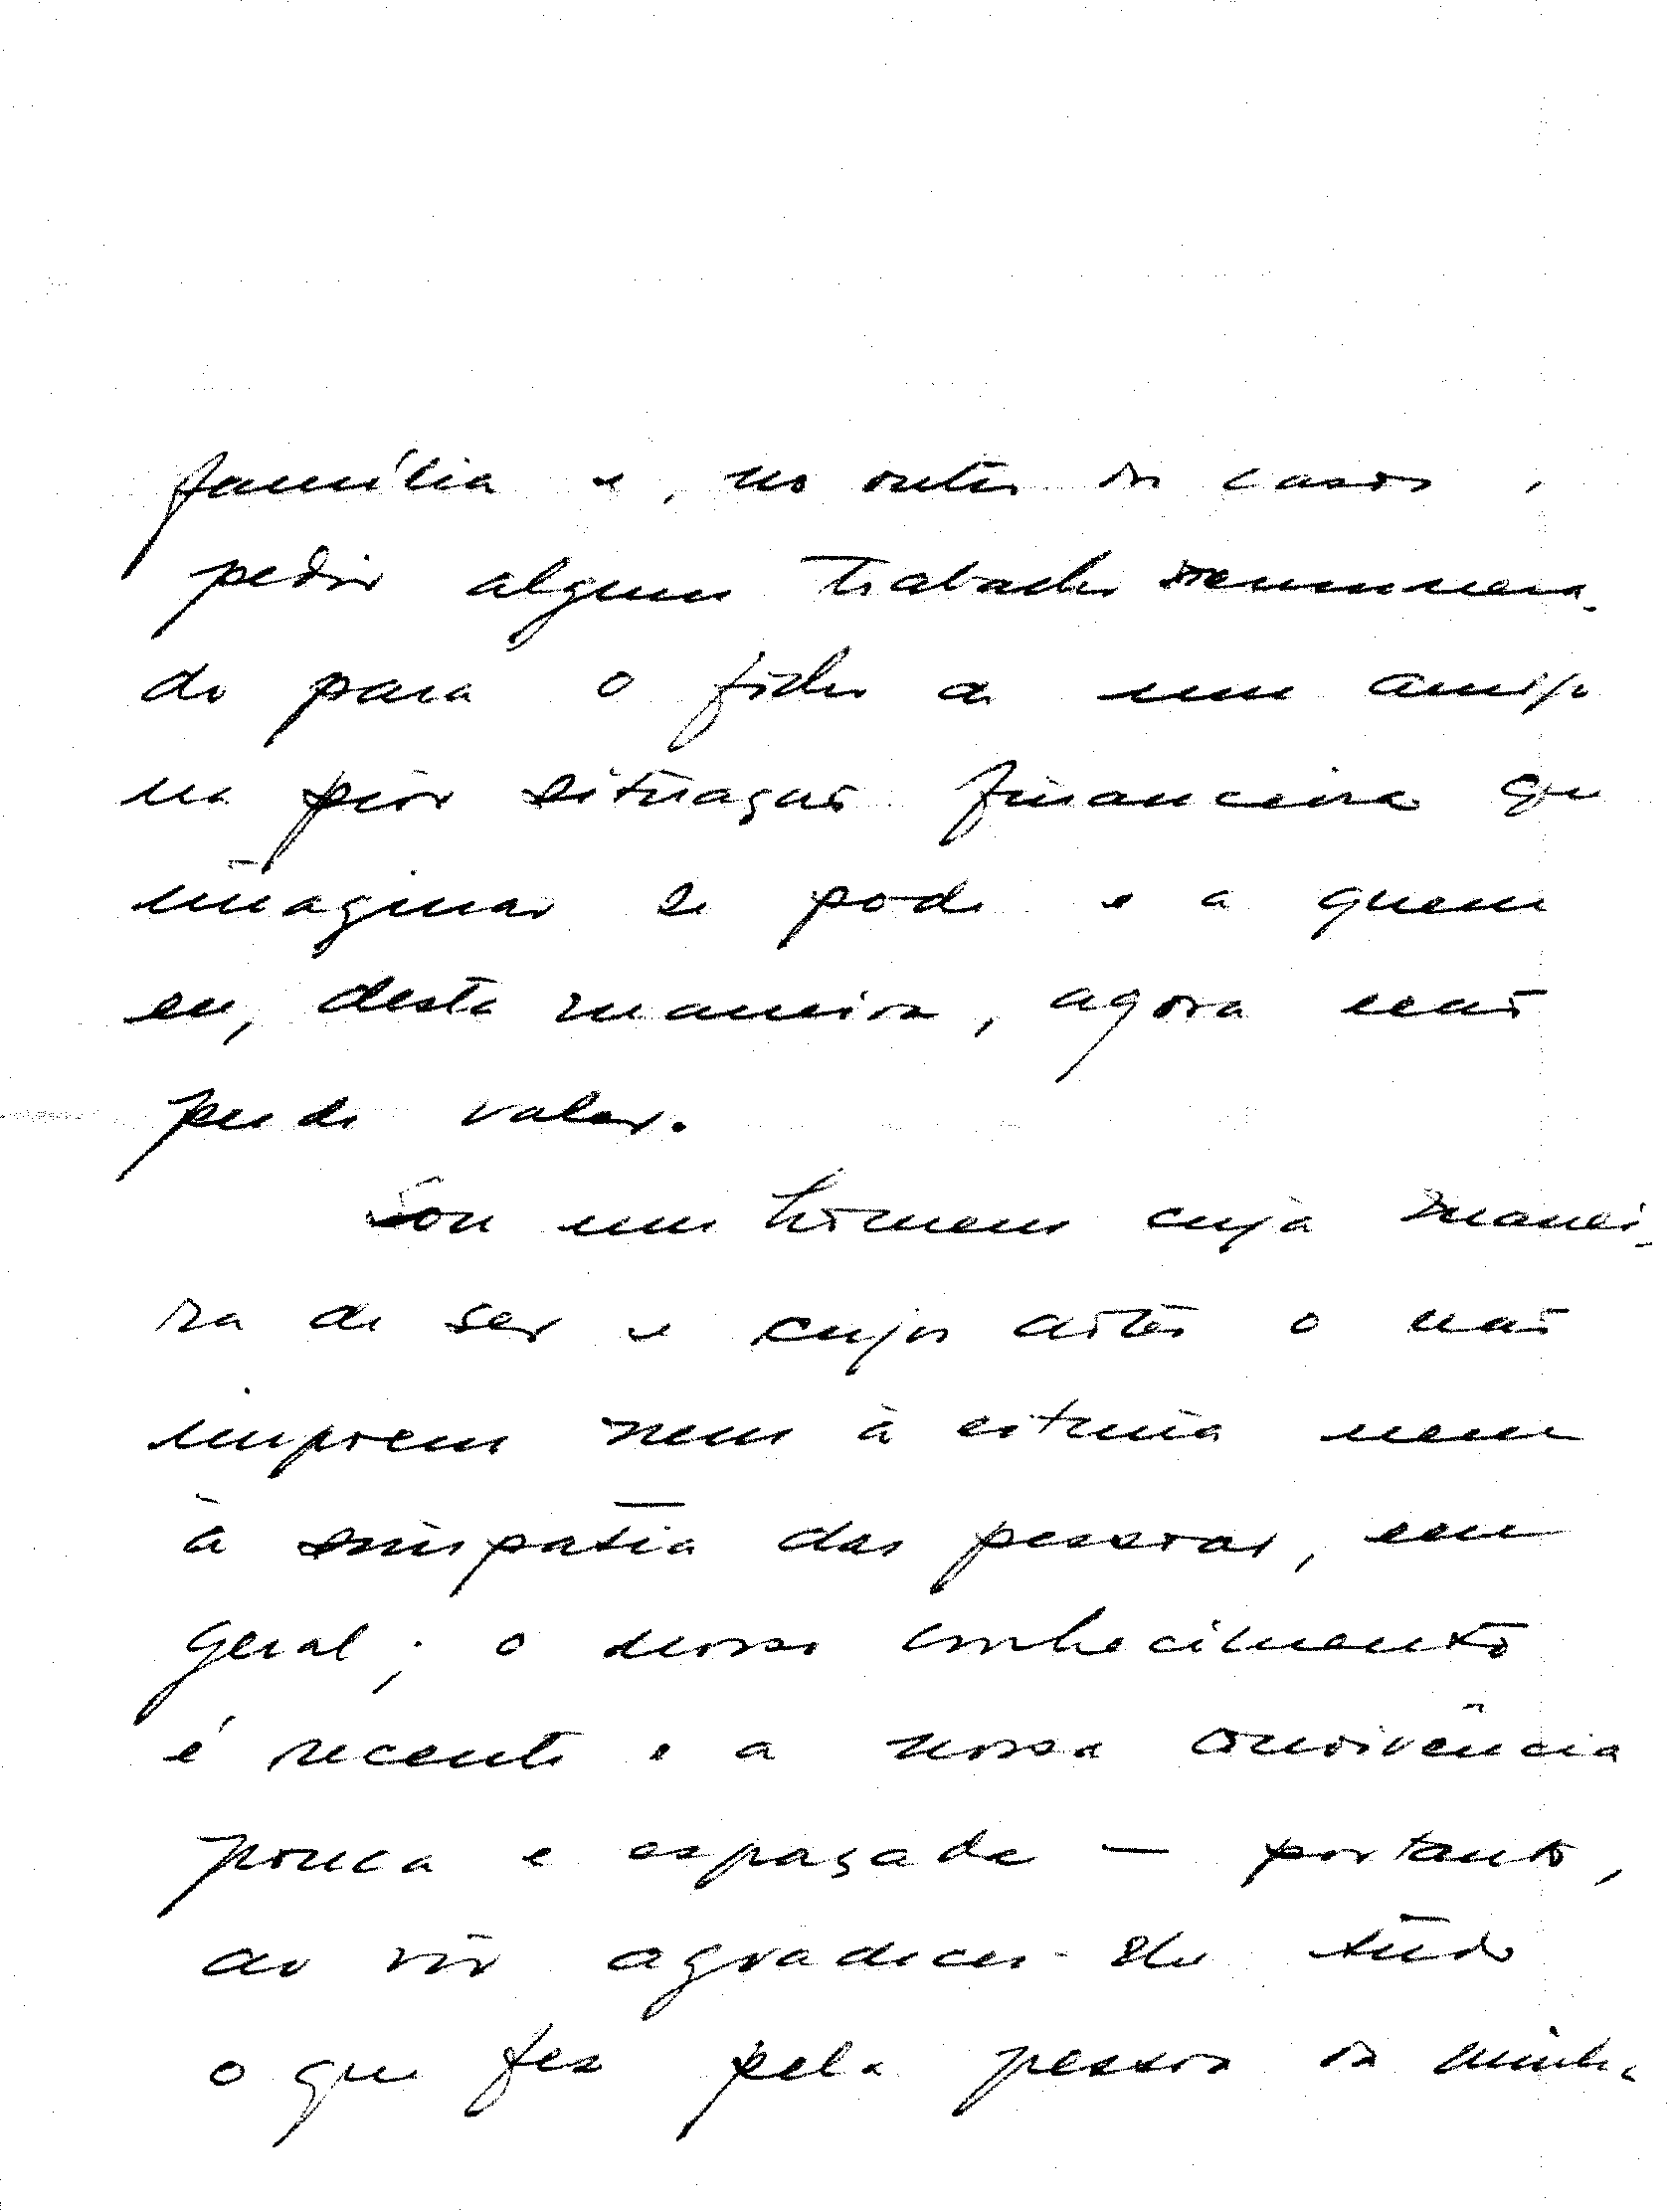 família e, no outro dos casos,
pedir algum trabalho remunera-
do para o filho de um amigo
na pior situação financeira que
imaginar se pode e a quem
eu, desta maneira, agora não
pude valer.
Sou um homem cuja manei-
ra de ser e cujos actos o não
impoem nem à estima nem
à simpatia das pessoas, em
geral; o nosso conhecimento
é recente e a nossa convivência
pouca e espaçada — portanto,
ao vir agradecer-lhe tudo
o que fez pela pessoa da minha